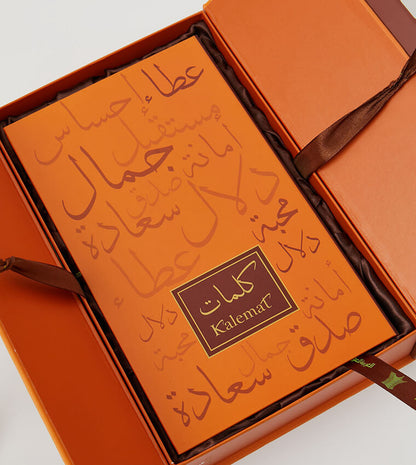 عطاء
إحساس
مستقبل
جمال
أمانة
صدق
سعادة
دلال
محبة
عطاء
دلال
كلمات
Kalemat
أمانة
دلال
محبة
جمال
صدق
سعادة